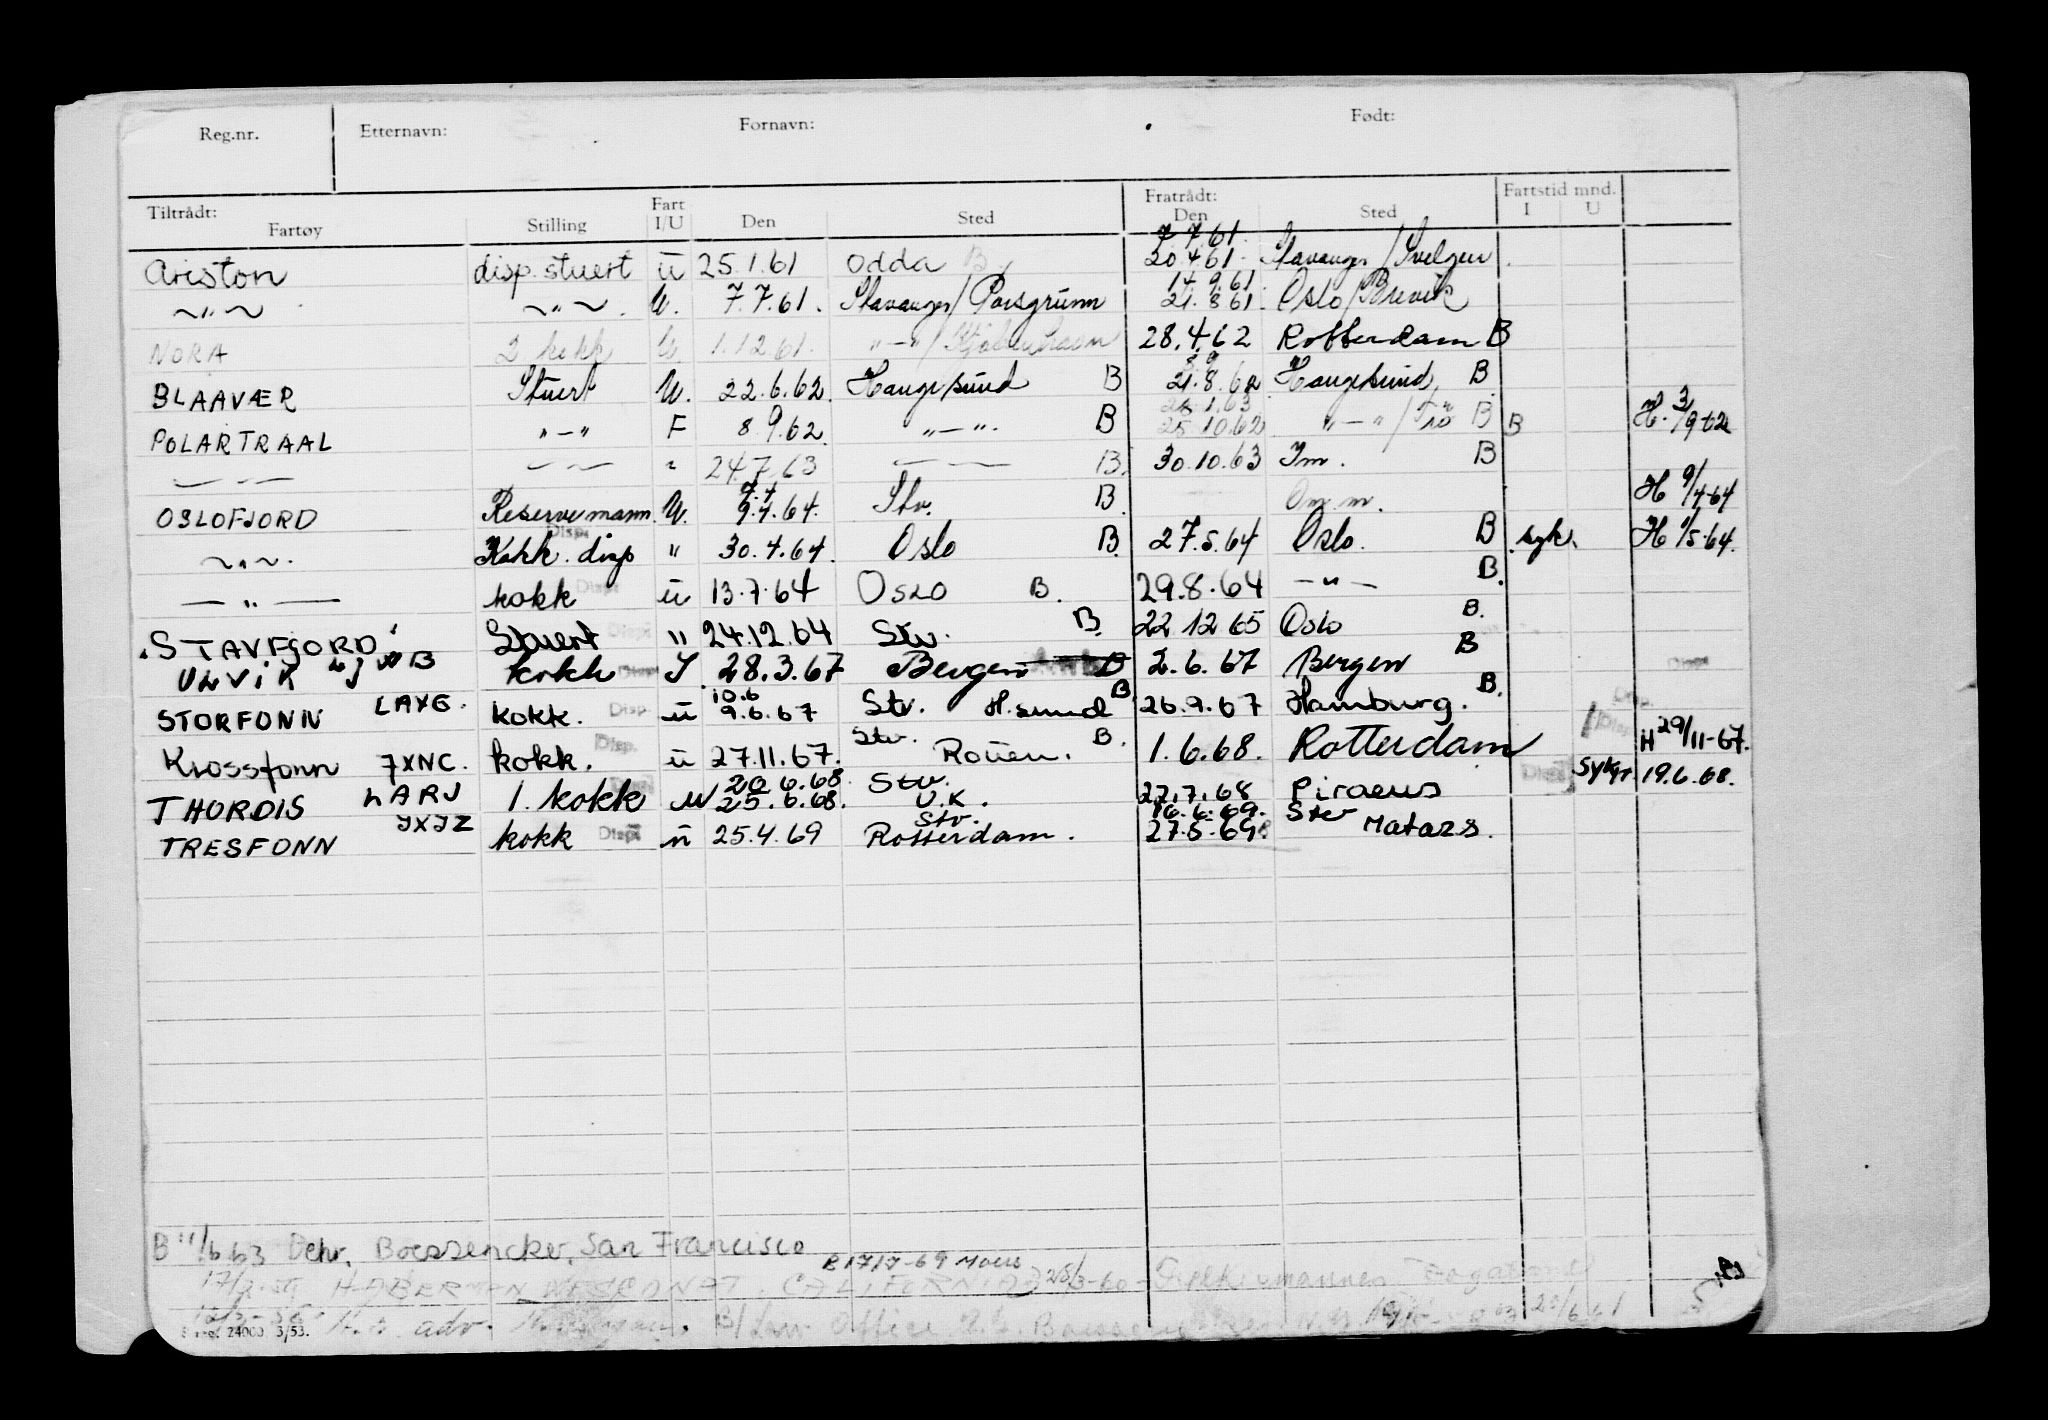 Reg.nr. Etternavn: Fornavn: Født:
Tiltrådt: Fart Fratrådt: Fartstid mnd.
Fartøy Stilling I/U Den Sted Den Sted I U
7.7.61.
Ariston disp. stuert ü 25.1.61 Odda B. 20.4.61. Stavanger/Svelgen
14.9.61.
~"~ ~"~ U. 7.7.61. Stavanger/Porsgrunn 21.8.61. Oslo/Brevik
NORA 2 kokk U 1.12.61. "-"/Kjøbenhavn 28.4.62 Rotterdam B
8.9
BLAAVÆR Stuert U. 22.6.62. Haugesund B 21.8.62 Haugesund B
1.63
POLARTRAAL "-" F 8.9.62. "-". B 25.10.62 "-"/ B B H. 3/9-62
— " — — " — " 24.7.63 — B. 30.10.63 Im. B
OSLOFJORD Reservemann U. 9.4.64. Stv. B. Om m. H 9/4-64
Disp.
~"~. Kokk. disp " 30.4.64. Oslo B. 27.5.64 Oslo. B syk. H 1/5-64.
— " — kokk Disp ü 13.7.64 Oslo B. 29.8.64 —"— B.
"STAVFJORD" Stuert Disp " 24.12.64 Stv. B. 22 12 65 Oslo B.
ULVIK kokk Disp I 28.3.67 Bergen B 2.6.67 Bergen B Disp
10.6
STORFONN LAXG. kokk. Disp. ü 9.6.67 Stv. H.sund B 26.9.67 Hamburg. B. Disp.
Krossfonn JXNC. kokk. Disp. ü 27.11.67. Stv. Rouen. B. 1.6.68. Rotterdam Disp H 29/11-67.
20.6.68 Stv.
THORDIS LARJ 1. kokk U 25.6.68. U.K. 27.7.68 Piraeus Disp Sykr. 19.6.68.
Stv. 16.6.69. Stv
TRESFONN JXJZ kokk Disp ü 25.4.69 Rotterdam. 27.5.69. Matazs.
B 11/6.63 Dehr. Boessencker, San Francisco
B 17/7-69 Moss
17/2-59 HABERMAN CALIFORNIA 25/3-60 -
adv. B/Law Office 25/6.61
24000. 3/53.